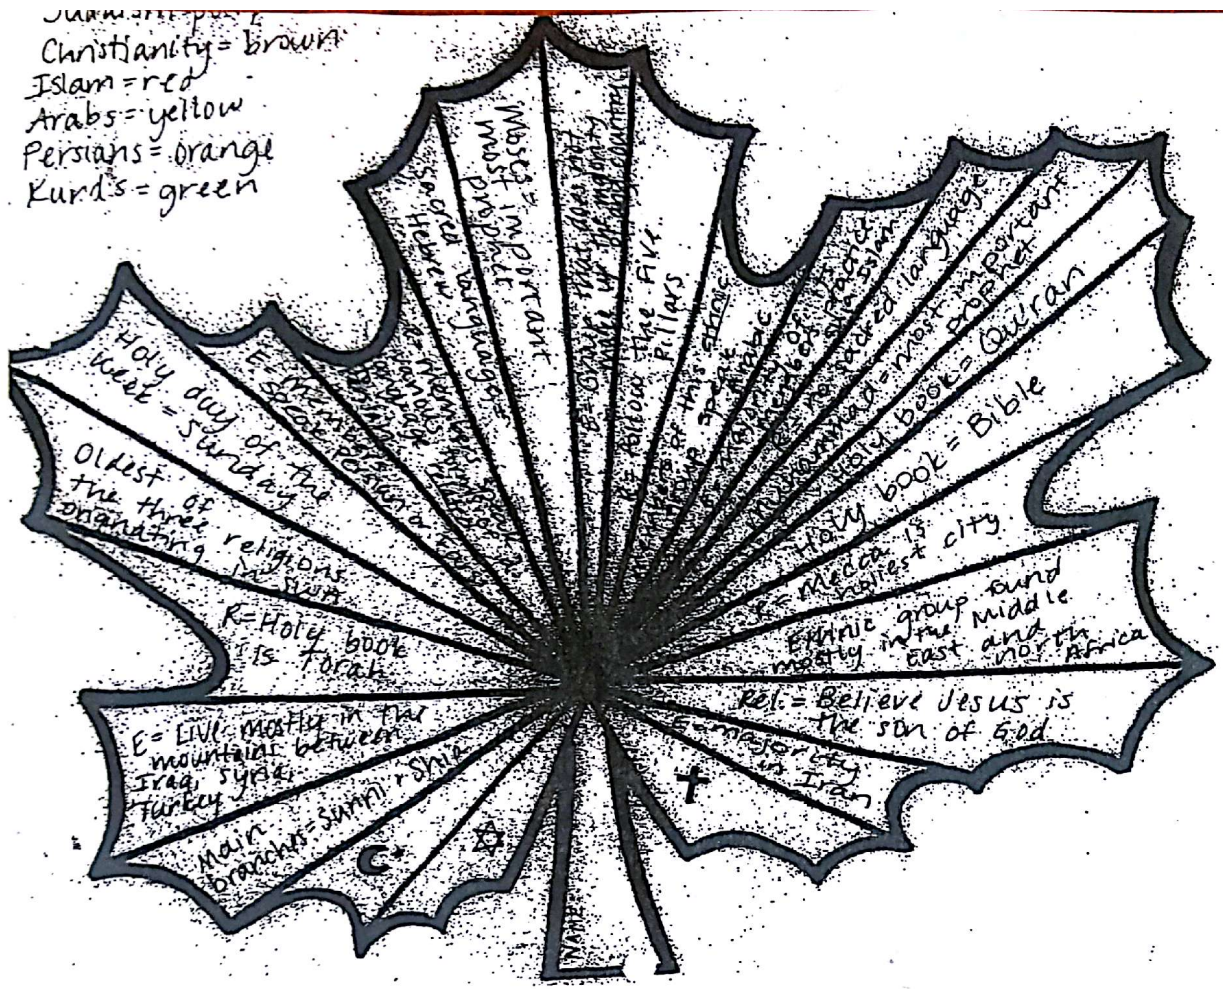 Christianity = brown
Islam = red
Arabs = yellow
Persians = orange
Kurds = green
Holy day of the
week = Sunday
Oldest of
the three
religions
originating
in SWA
R = Holy book
is Torah
E = Live mostly in the
mountains between
Iraq, Syria,
Turkey
Main
branches = Sunni + Shia
E = Members
speak Persian or
Farsi
Sacred language =
Hebrew
Moses =
most important
prophet
E = Group that does not
make up the majority
of any country
R = Follow the Five
Pillars
of this ethnic
group speak
Arabic
majority of its
members practice
Shia Islam
R = no sacred language
Muhammad = most important
prophet
Holy book = Qu'ran
Holy book = Bible
R = Mecca is
holiest city
Ethnic group found
mostly in the Middle
East and
North
Africa
Rel. = Believe Jesus is
the son of God
E = majority
in Iran
NAME